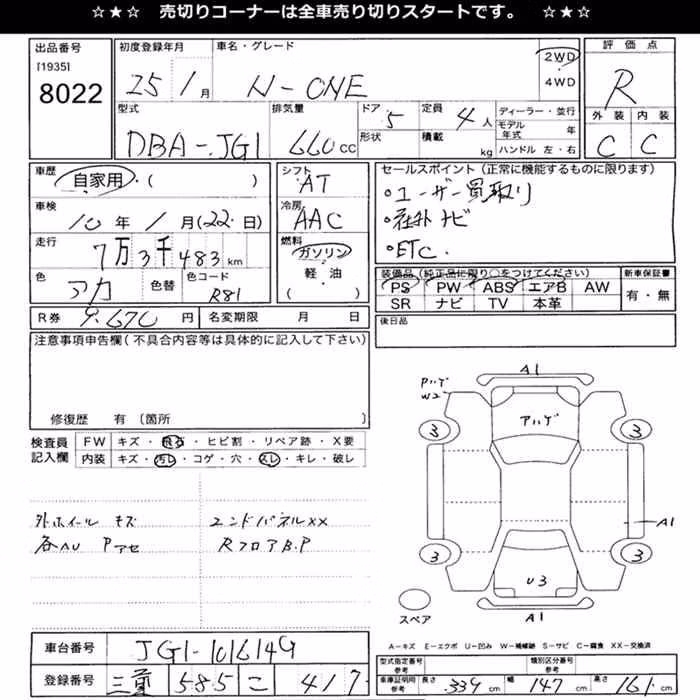 ☆★☆ 売切りコーナーは全車売り切りスタートです。 ☆★☆
出品番号
[1935]
8022
初度登録年月
25年1月
車名・グレード
N-ONE
2WD
・
4WD
評価点
R
外装 内装
C C
型式
DBA-JG1
排気量
660cc
ドア
5
形状
定員
4人
積載
kg
ディーラー・並行
モデル年式 年
ハンドル 左・右
車歴
自家用・( )
車検
10年1月(22日)
走行
7万3千483km
色
アカ
色替
色コード
R81
シフト
AT
冷房
AAC
燃料
ガソリン
・
軽油
( )
セールスポイント(正常に機能するものに限ります)
・ユーザー買取り
・社外ナビ
・ETC.
装備品(純正品に限り○をつけてください)
PS PW ABS エアB AW
SR ナビ TV 本革
新車保証書
有・無
R券 9,670円
名変期限 月 日
後日品
注意事項申告欄(不具合内容等は具体的に記入して下さい)
修復歴 有〔箇所 〕
検査員
記入欄
FW キズ・飛石・ヒビ割・リペア跡・X要
内装 キズ・汚レ・コゲ・穴・スレ・キレ・破レ
外ホイール キズ
各AU Pアセ
エンドパネルXX
RフロアB.P
A1
Pハゲ
W2
アハゲ
3 3
A1
3 3
U3
スペア
A1
A-キズ E-エクボ U-凹み W-補修跡 S-サビ C-腐食 XX-交換済
車台番号
JG1-101614G
登録番号
三重 585 こ 417
型式指定番号
参考
類別区分番号
参考
車庫証明用
参考
長さ 339cm 幅 147cm 高さ 161cm